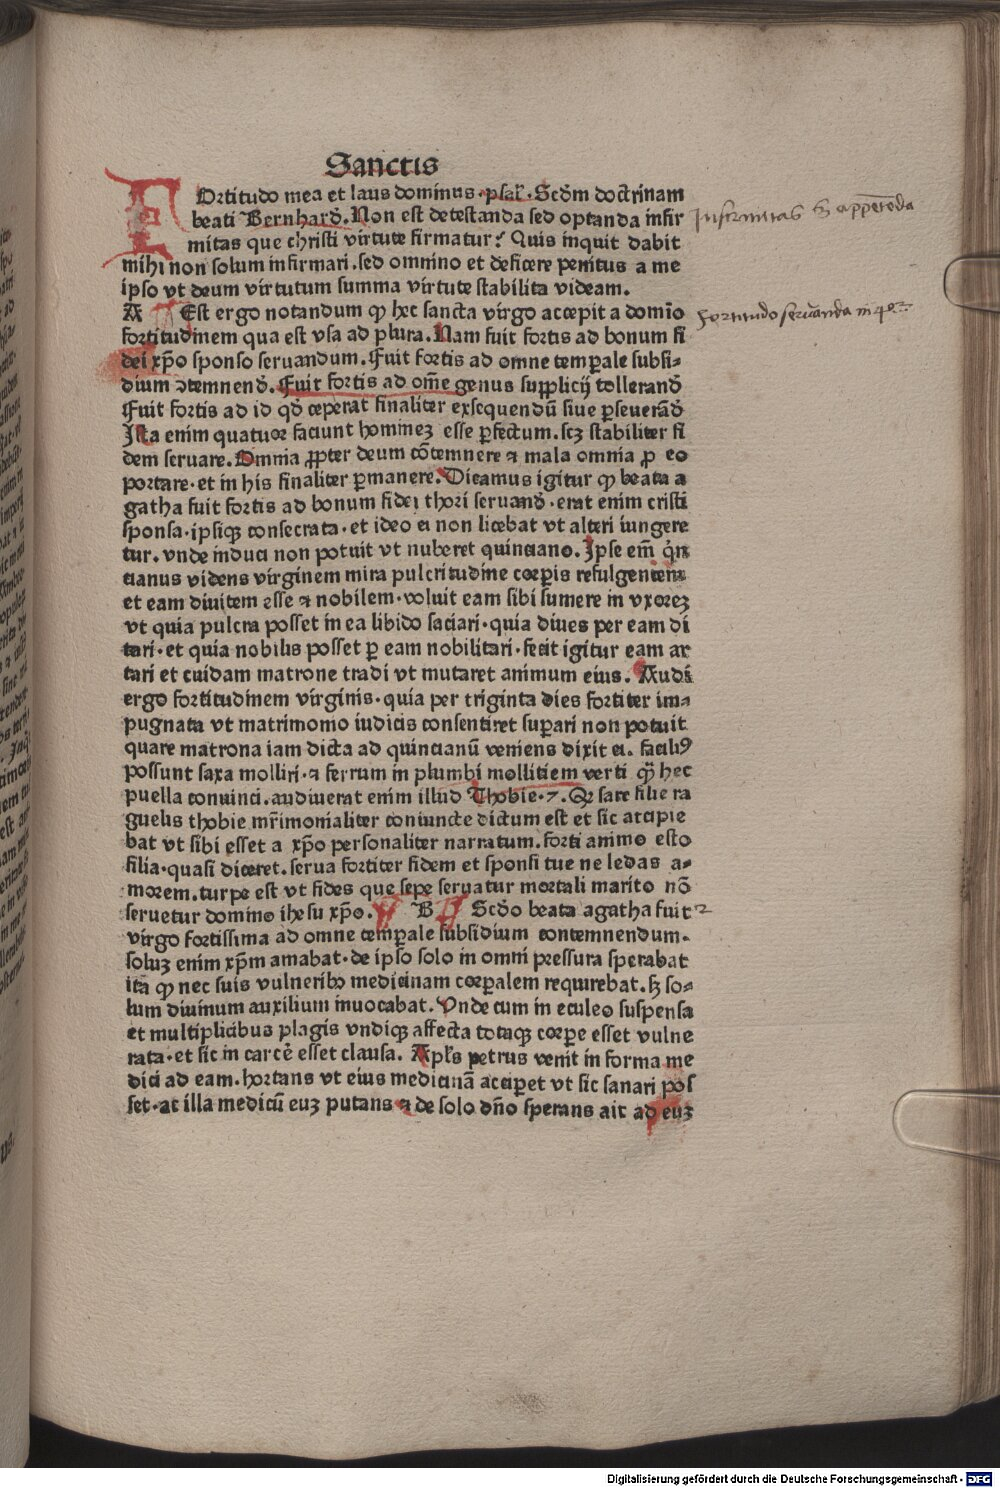 Sanctis
FOrtitudo mea et laus dominus·psal̄·Scd̄m doctrinam
beati Bernhard̄.Non est detestanda sed optanda infir
mitas que christi virtute firmatur? Quis inquit dabit
mihi non solum infirmari.sed omnino et deficere penitus a me
ipso vt deum virtutum summa virtute stabilita videam.
A Est ergo notandum ꝙ hec sancta virgo accepit a domīo
fortitudinem qua est vsa ad plura. Nam fuit fortis ad bonum fi
dei xp̄o sponso seruandum. Fuit fortis ad omne temꝑale subsi-
dium ↄtemnend̄. Fuit fortis ad om̄e genus supplicij tollerand̄
Fuit fortis ad id qd̄ ceperat finaliter exsequendū siue ꝑseuerād̄
Ista enim quatuor faciunt hominez esse ꝑfectum. scz stabiliter fi
dem seruare. Omnia ꝓpter deum cōtemnere ⁊ mala omnia ꝓ eo
portare·et in his finaliter ꝑmanere. Dicamus igitur ꝙ beata a
gatha fuit fortis ad bonum fidei thori seruand̄·erat enim cristi
sponsa·ipsiqꝫ consecrata·et ideo ei non licebat vt alteri iungere
tur. vnde induci non potuit vt nuberet quinciano. Ipse em̄ q̄in
cianus videns virginem mira pulcritudine corꝑis refulgentem
et eam diuitem esse ⁊ nobilem·voluit eam sibi sumere in vxorez
vt quia pulcra posset in ea libido saciari·quia diues per eam di
tari·et quia nobilis posset ꝑ eam nobilitari·fecit igitur eam ar
tari et cuidam matrone tradi vt mutaret animum eius. Audi
ergo fortitudinem virginis·quia per triginta dies fortiter im-
pugnata vt matrimonio iudicis consentiret suꝑari non potuit
quare matrona iam dicta ad quincianū veniens dixit ei. faciliꝰ
possunt saxa molliri·⁊ ferrum in plumbi mollitiem verti qͣ̄ hec
puella conuinci.audiuerat enim illud Thobie·7. Qꝛ sare filie ra
guelis thobie mr̄imonialiter coniuncte dictum est et sic accipie
bat vt sibi esset a xp̄o personaliter narratum.forti animo esto
filia·quasi diceret.serua fortiter fidem et sponsi tue ne ledas a-
morem.turpe est vt fides que sepe seruatur mortali marito nō
seruetur domino ihesu xp̄o. B Scd̄o beata agatha fuit
virgo fortissima ad omne temꝑale subsidium contemnendum.
soluz enim xp̄m amabat·de ipso solo in omni pressura sperabat
ita ꝙ nec suis vulneribꝰ medicinam corꝑalem requirebat.sꝫ so-
lum diuinum auxilium inuocabat. Vnde cum in eculeo suspensa
et multiplicibus plagis vndiqꝫ affecta totaqꝫ corꝑe esset vulne
rata·et sic in carcē esset clausa. Apl̄s petrus venit in forma me
dici ad eam.hortans vt eius medicinā acciꝑet vt sic sanari pos
set·at illa medicū euꝫ putans ⁊ de solo dn̄o sperans ait ad euꝫ
Infirmitas sꝫ appetenda
Fortitudo seruanda in
Digitalisierung gefördert durch die Deutsche Forschungsgemeinschaft - DFG